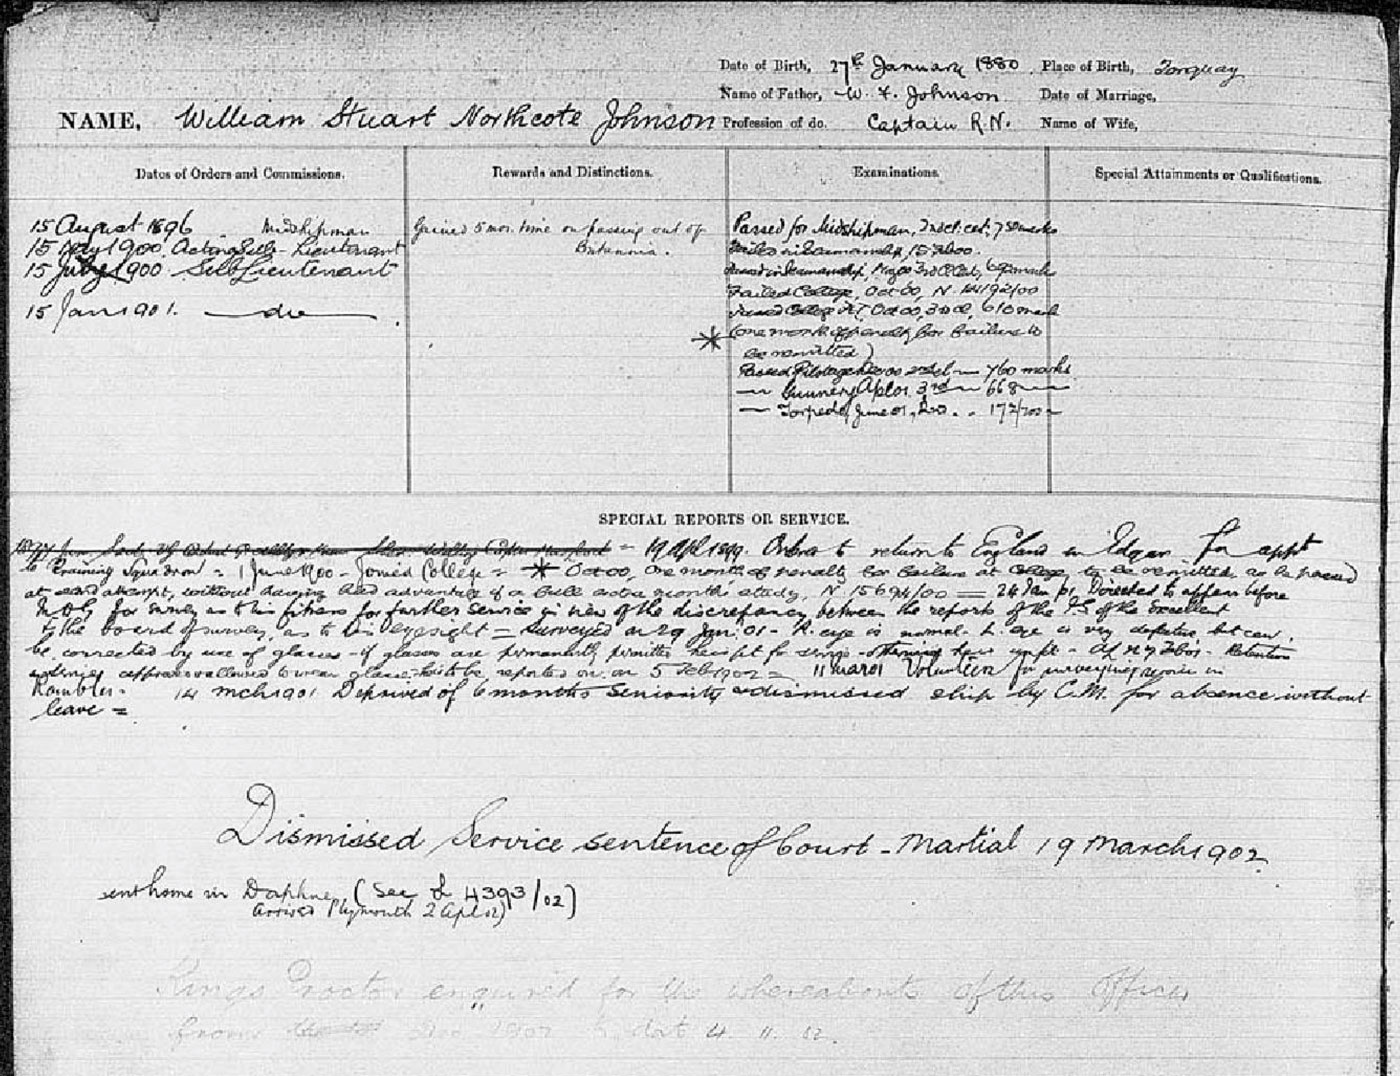 Date of Birth, 27th January 1880 Place of Birth, Torquay
Name of Father, W. F. Johnson Date of Marriage,
NAME, William Stuart Northcote Johnson Profession of do. Captain R.N. Name of Wife,
Dates of Orders and Commissions.
15 August 1896 Midshipman
15 May 1900 Acting Sub-Lieutenant
15 July 1900 Sub Lieutenant
15 Jan 1901. do
Rewards and Distinctions.
Gained 5 mos. time on passing out of
Britannia.
Examinations.
Passed for Midshipman, 2nd cl. cert,
in Seamanship,
in Seamanship, May 00 3rd Cl Cert, marks
Failed College, Oct 00, N
College Oct 00, 3rd cl, 610 marks
(one month of penalty for failure to
be remitted)
Passed Pilotage 760 marks
— Gunnery Apl 01. 3rd — 668 —
— Torpedo, June 01, 172/200
Special Attainments or Qualifications.
SPECIAL REPORTS OR SERVICE.
= 19 Apl 1899. Order to return to England in Edgar for appt
to Training Squadron = 1 June 1900 - Joined College = * Oct 00, one month of penalty for failure at College to be remitted as he passed
at 2nd attempt, without having had advantage of a full extra months study, N 15694/00 = 24 Jan 01, Directed to appear before
for survey as to his fitness for further service in view of the discrepancy between the reports of the of the Excellent
& the board of survey, as to his eyesight = Surveyed on 29 Jan. 01 - R. eye is normal. L. eye is very defective, but can
be corrected by use of glasses - if glasses are permanently permitted he is fit for - otherwise unfit - Retention
approved allowed to wear glasses to be reported on on 5 Feb 1902 = 11 Mar 01 Volunteer for surveying service in
Rambler. 14 Mch 1901 Deprived of 6 months seniority & dismissed ship by C.M. for absence without
leave =
Dismissed Service sentence of Court-Martial 19 March 1902
sent home in Daphne (See L 4393/02)
Arrived Plymouth 2 Apl 02
Kings Proctor enquired for the whereabouts of this Officer
from